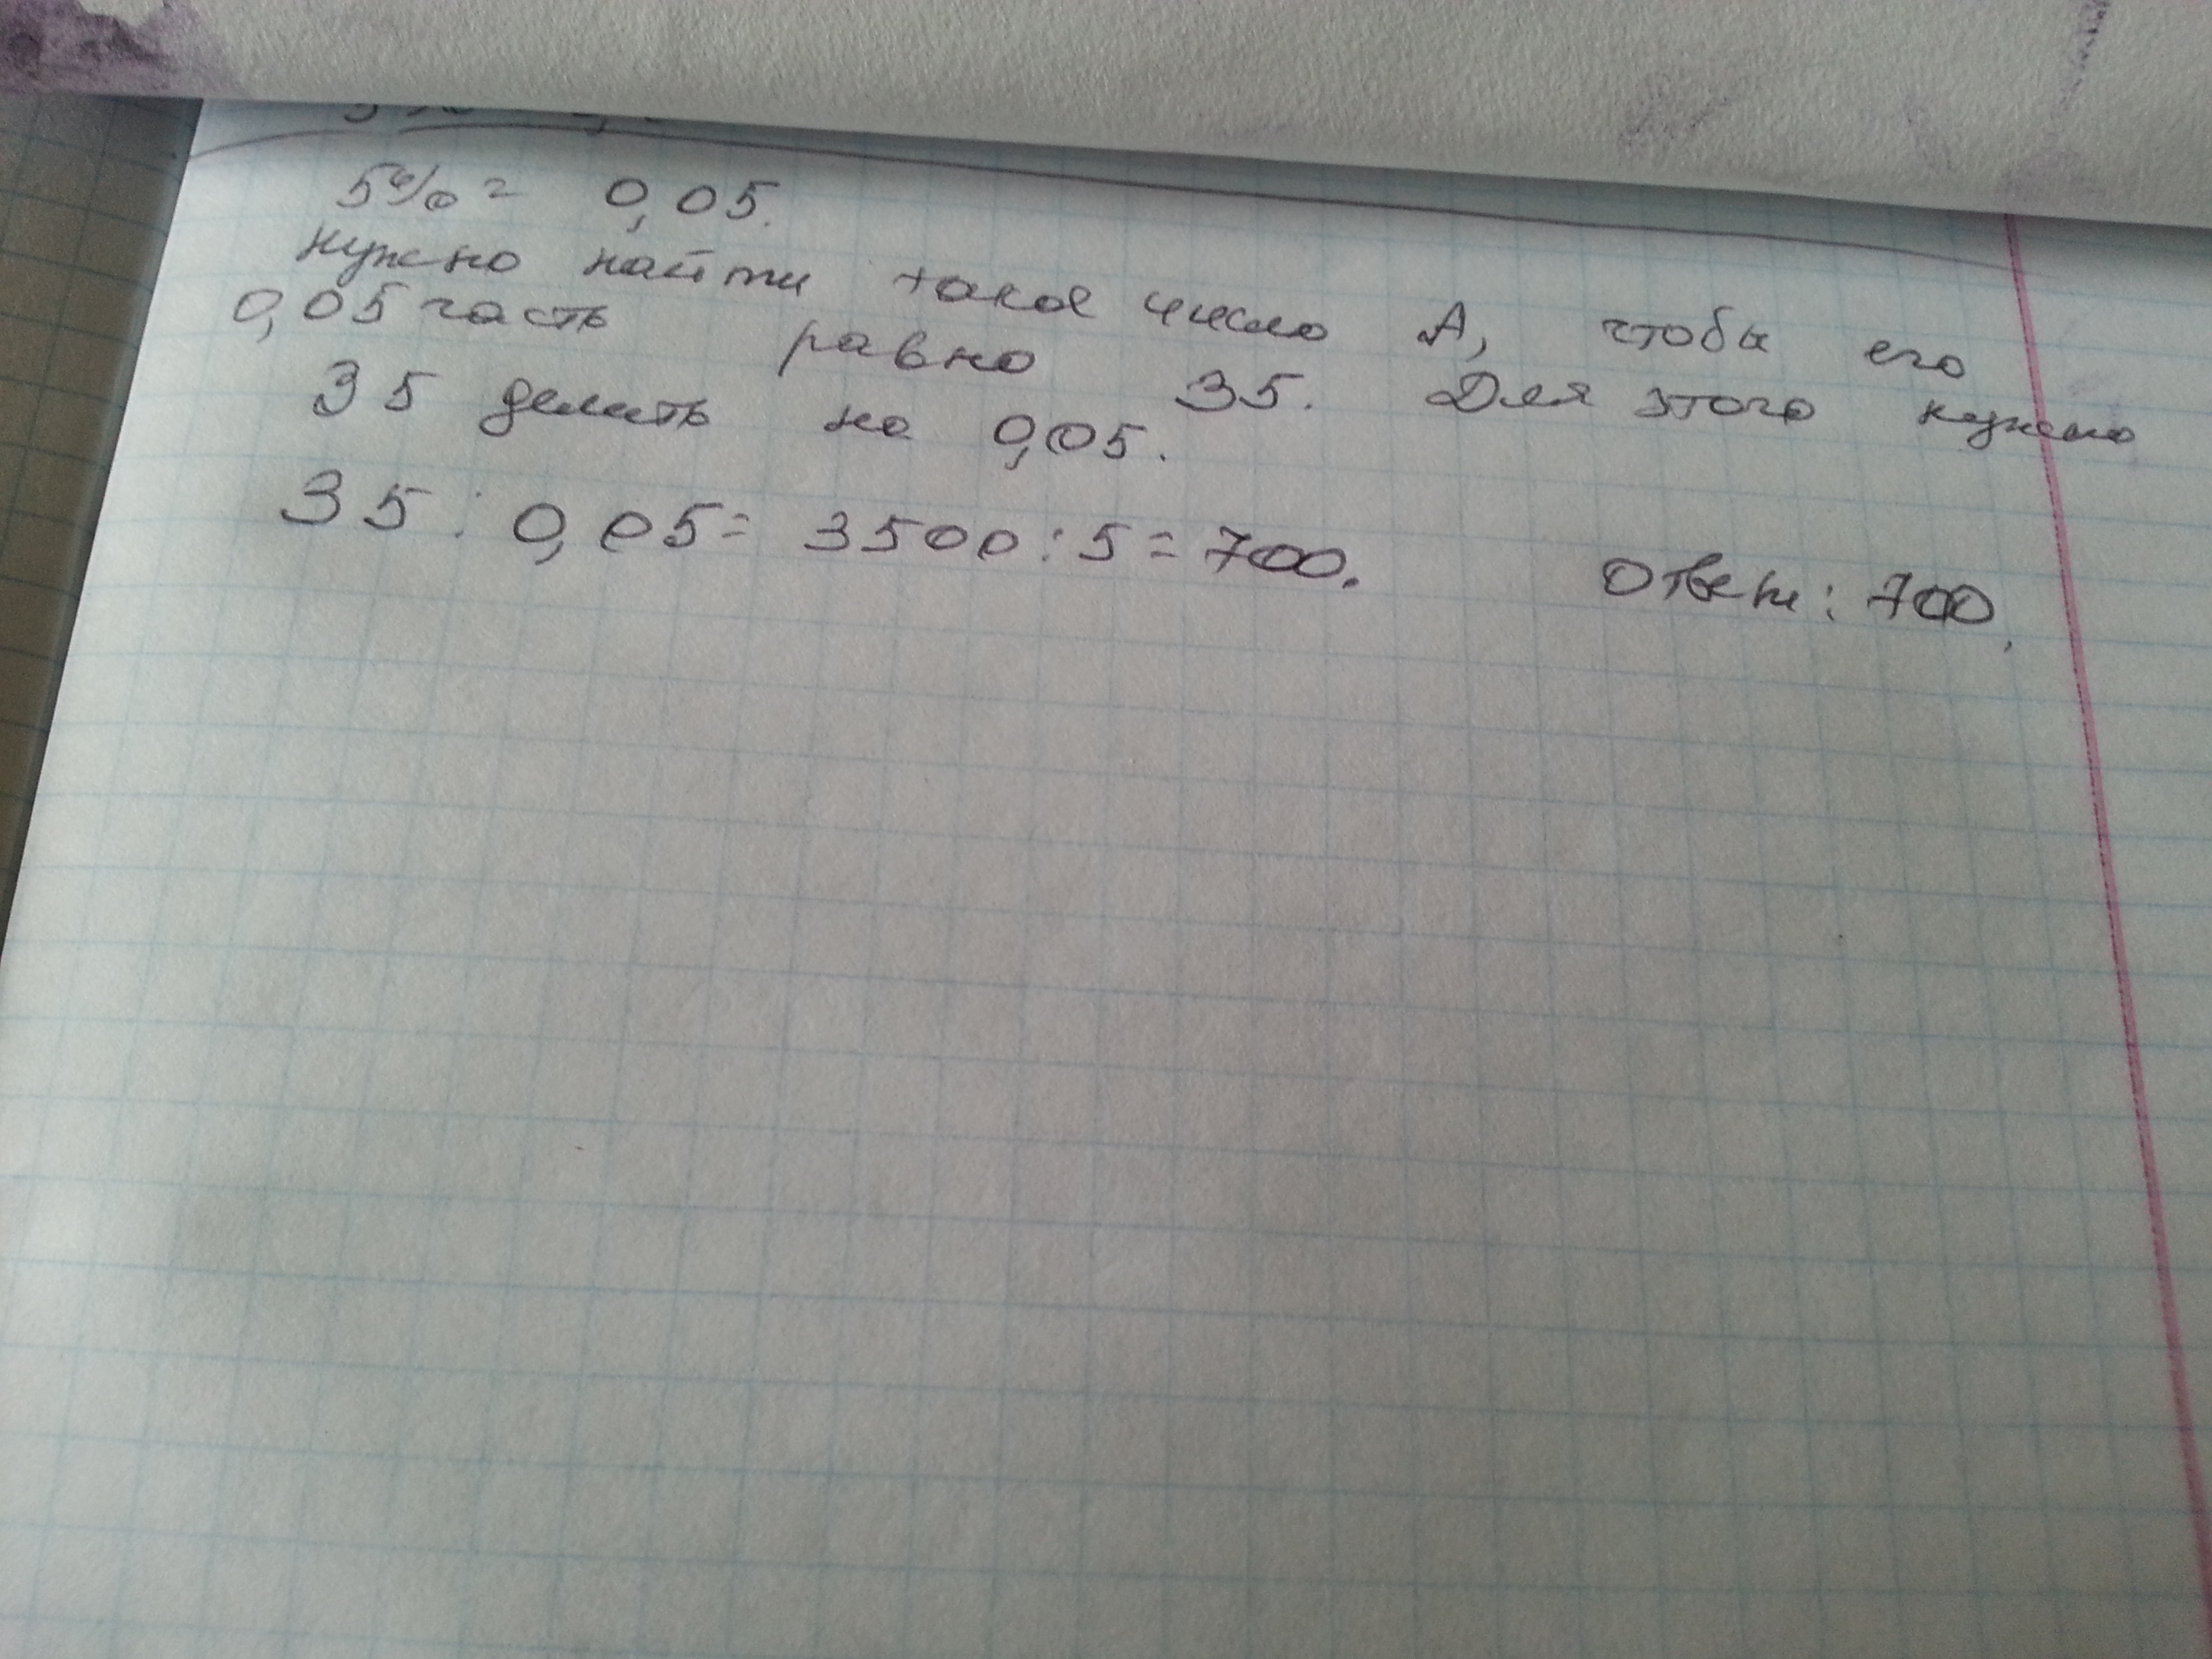 5% = 0,05.
нужно найти такое число А, чтобы его
0,05 часть равно 35. Для этого нужно
35 делить на 0,05.
35 : 0,05 = 3500 : 5 = 700. Ответ: 700.